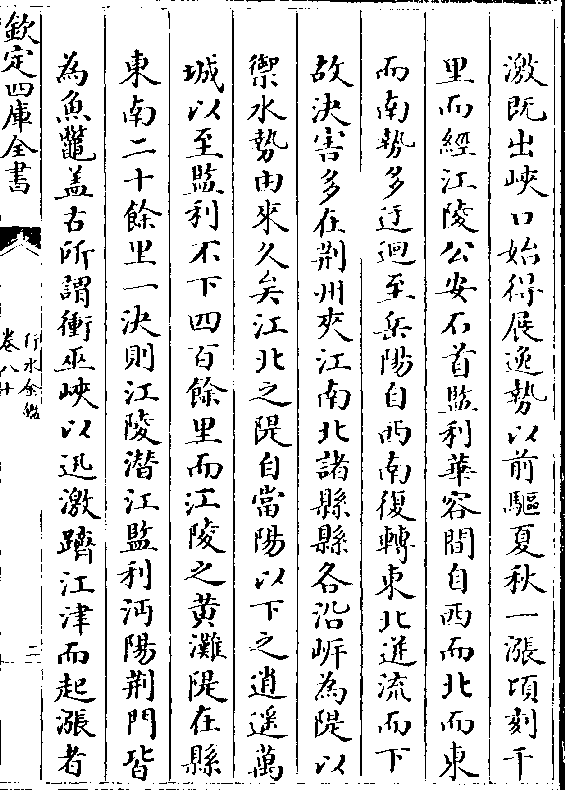 激既出峽口始得展逸勢以前驅夏秋一漲頃刻千
里而經江陵公安石首監利華容間自西而北而東
而南勢多迂迴至岳陽自西南復轉東北迸流而下
故決害多在荆州夾江南北諸縣縣各沿岍為隄以
禦水勢由來久矣江北之隄自當陽以下之逍遥萬
城以至監利不下四百餘里而江陵之黄灘隄在縣
東南二十餘里一決則江陵潜江監利沔陽荆門皆
為魚鼈盖古所謂衝巫峽以迅激躋江津而起漲者
欽定四庫全書
行水金鑑
卷八十
二